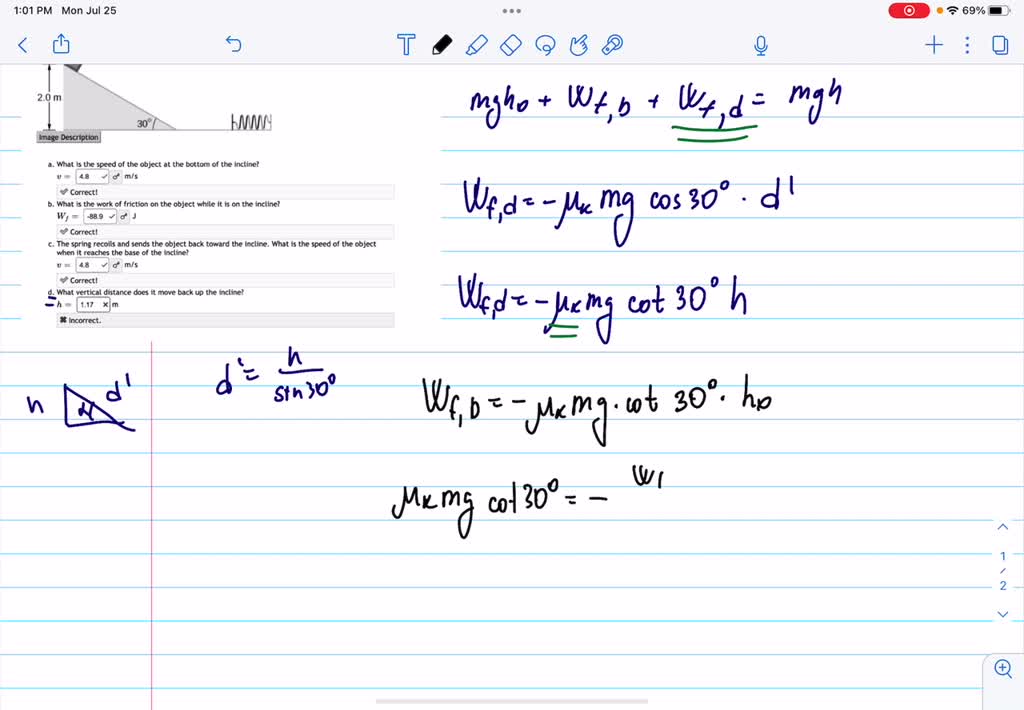 1:01 PM Mon Jul 25
69%
2.0 m
30°
Image Description
a. What is the speed of the object at the bottom of the incline?
v = 4.8 ✓ m/s
✓ Correct!
b. What is the work of friction on the object while it is on the incline?
W_f = -88.9 ✓ J
✓ Correct!
c. The spring recoils and sends the object back toward the incline. What is the speed of the object
when it reaches the base of the incline?
v = 4.8 ✓ m/s
✓ Correct!
d. What vertical distance does it move back up the incline?
h = 1.17 × m
✖ Incorrect.
mgh₀ + W_f,b + W_f,d = mgh
W_f,d = -μ_k mg cos 30° · d'
W_f,d = -μ_k mg cot 30° h
h
d'
d' = h / sin 30°
W_f,b = -μ_k mg · cot 30° · h₀
μ_k mg cot 30° = - W
1
/
2